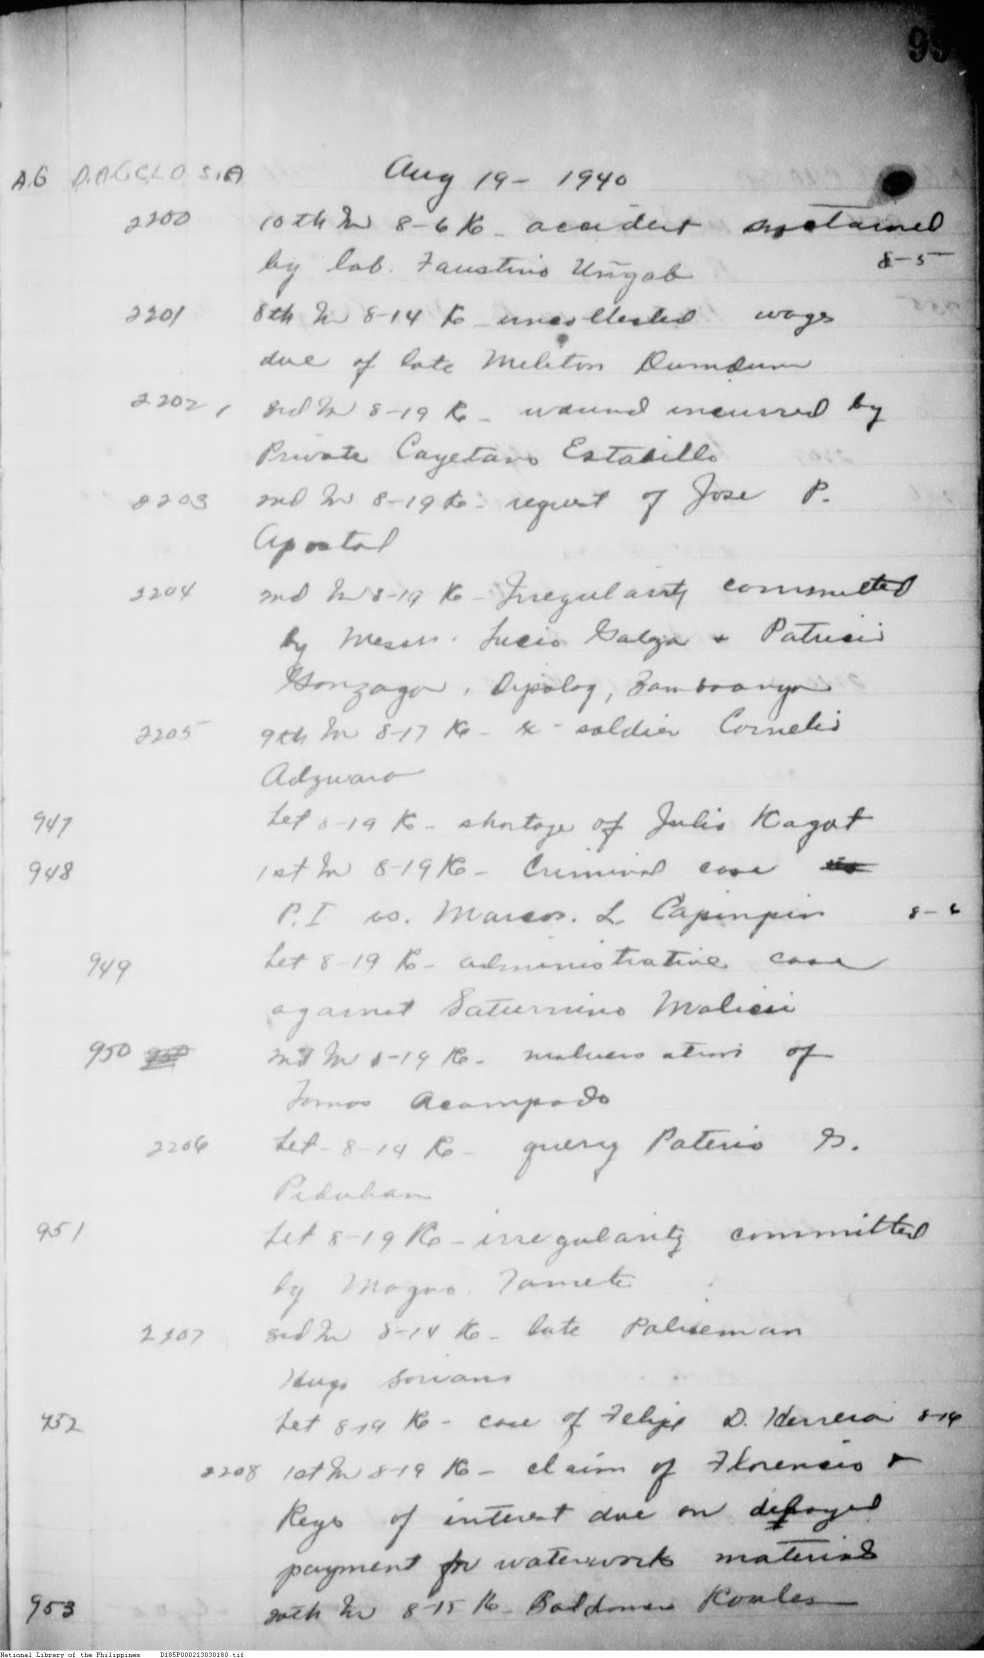 Aug 19 - 1940
2200 10th In 8-6 K - accident sustained
by lab. Faustino Ungab 8-5
2201 8th In 8-14 K uncollected wages
due of late Meliton Dumdum
2202, 3rd In 8-19 K - wound incurred by
Private Cayetano Estabillo
2203 2nd In 8-19 K - request of Jose P.
Apostol
2204 2nd In 8-19 K - Irregularity committed
by Messrs. Lucio Galza + Patricio
Gonzaga, Dipolog, Zamboanga
2205 9th In 8-17 K - x - soldier Cornelio
947 Let 8-19 K - shortage of Julio Kagat
948 1st In 8-19 K - Criminal case
P.I vs. Marcos. L Capinpin 8-6
949 Let 8-19 K - administrative case
against Saturnino
950 2nd In 8-19 K - malversation of
Tomas Acampado
2206 Let - 8-14 K - query Paterio G.
951 Let 8-19 K - irregularity committed
by Magno
2207 3rd In 8-14 K - late Policeman
Hugo Soriano
952 Let 8-19 K - case of Felipe D. Herrera 8-16
2208 1st In 8-19 K - claim of Florencio
Reyes of interest due on delayed
payment for waterworks materials
953 20th In 8-15 K - Baldomero
National Library of the Philippines D185P000213030180.tif